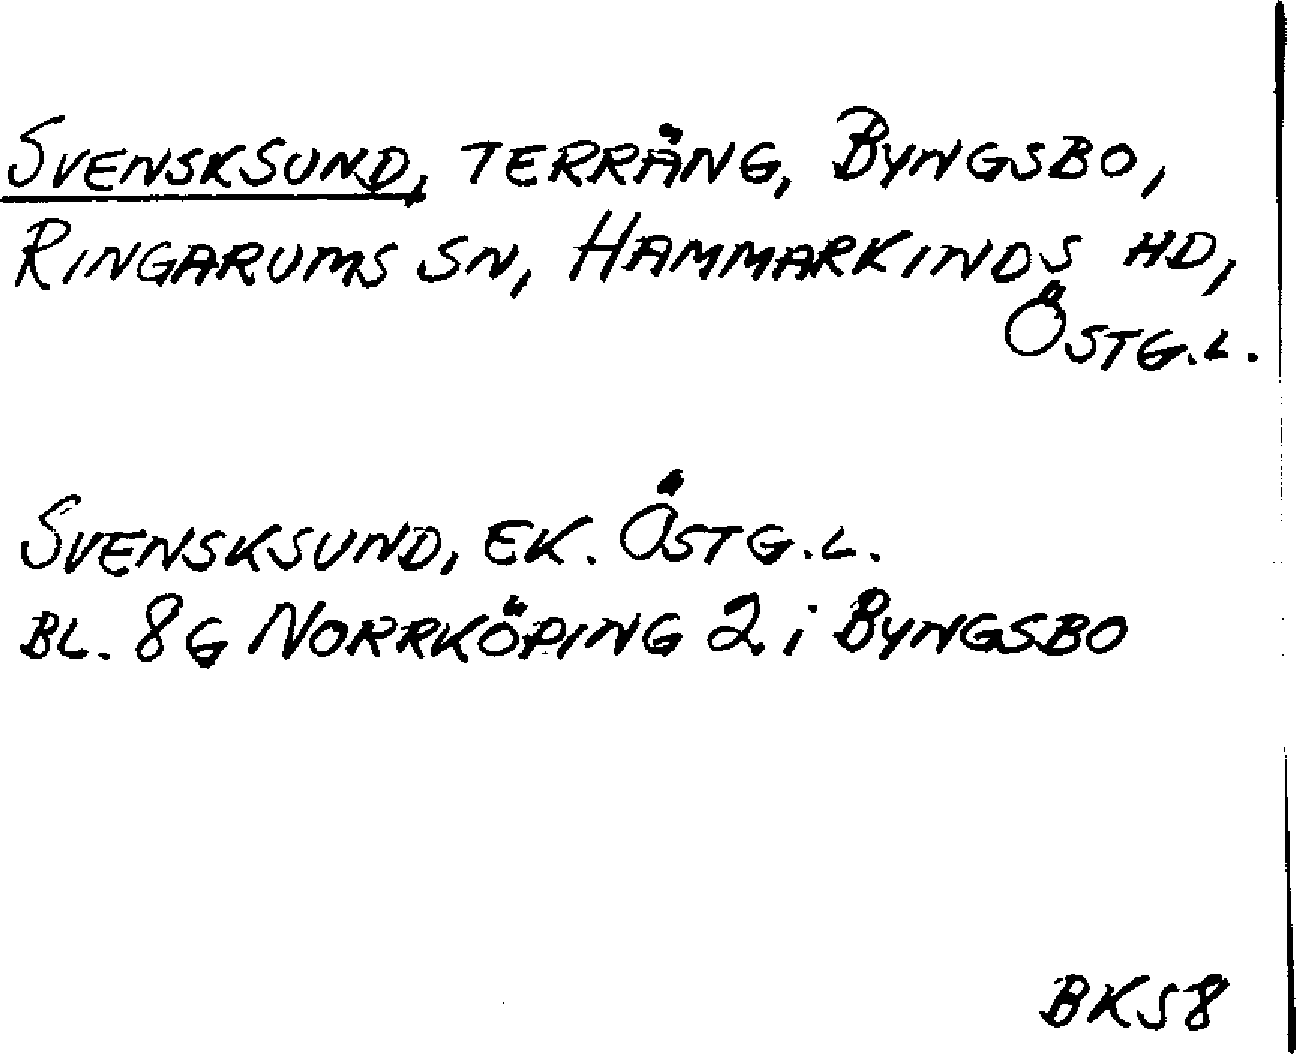 SVENSKSUND, TERRÄNG, BYNGSBO,
RINGARUMS SN, HAMMARKINDS HD,
ÖSTG.L.
SVENSKSUND, EK. ÖSTG.L.
BL. 8G NORRKÖPING 2 i BYNGSBO
BKS8